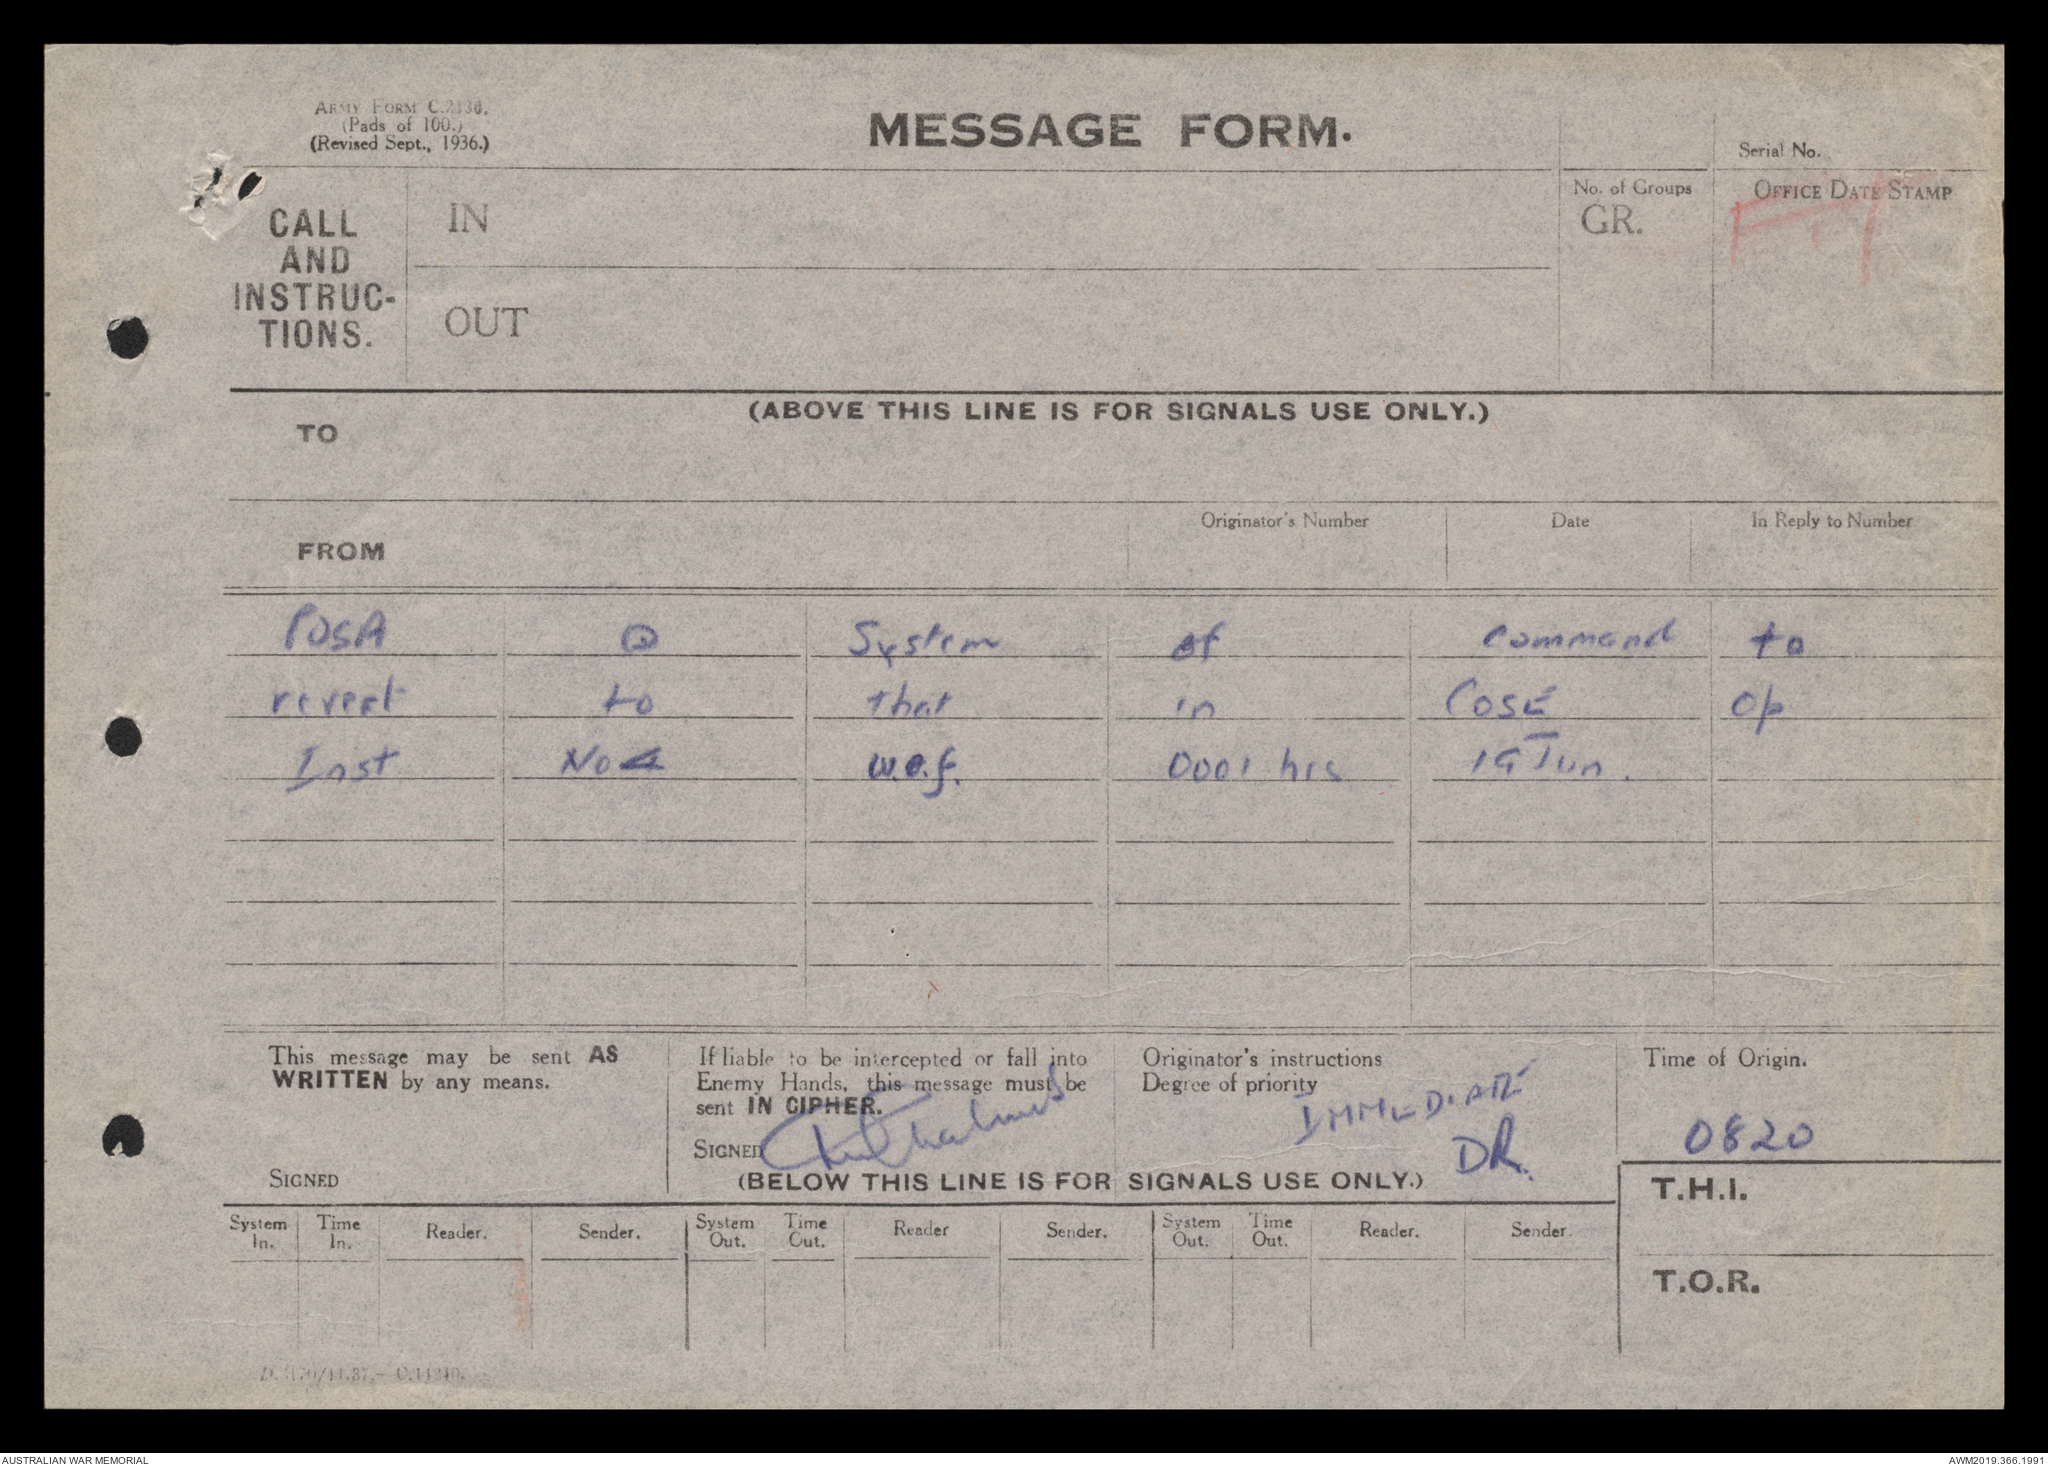 ARMY FORM C.2136.
(Pads of 100.)
(Revised Sept., 1936.)
MESSAGE FORM.
Serial No.
CALL
AND
INSTRUC-
TIONS.
IN
OUT
No. of Groups
GR.
OFFICE DATE STAMP
(ABOVE THIS LINE IS FOR SIGNALS USE ONLY.)
TO
FROM
Originator's Number
Date
In Reply to Number
System of command to
revert to that in COSE Op
Inst No 4 w.e.f. 0001 hrs 19 Jun.
This message may be sent AS
WRITTEN by any means.
SIGNED
If liable to be intercepted or fall into
Enemy Hands, this message must be
sent IN CIPHER.
SIGNED
Originator's instructions
Degree of priority
IMMEDIATE
DR.
Time of Origin.
0820
(BELOW THIS LINE IS FOR SIGNALS USE ONLY.)
T.H.I.
T.O.R.
System In. Time In. Reader. Sender. System Out. Time Out. Reader Sender. System Out. Time Out. Reader. Sender.
AUSTRALIAN WAR MEMORIAL
AWM2019.366.1991